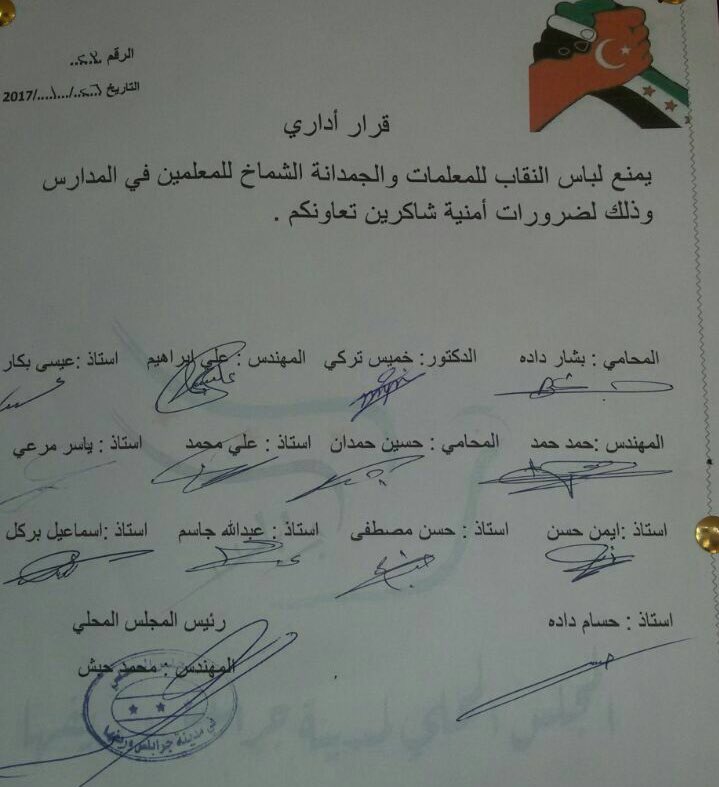 الرقم
التاريخ ٢٦/١/2017
قرار أداري
يمنع لباس النقاب للمعلمات والجمدانة الشماخ للمعلمين في المدارس
وذلك لضرورات أمنية شاكرين تعاونكم .
المحامي : بشار داده الدكتور: خميس تركي المهندس : علي ابراهيم استاذ :عيسى بكار
المهندس :حمد حمد المحامي : حسين حمدان استاذ : علي محمد استاذ : ياسر مرعي
استاذ :ايمن حسن استاذ : حسن مصطفى استاذ : عبدالله جاسم استاذ :اسماعيل بركل
استاذ : حسام داده رئيس المجلس المحلي
المهندس : محمد حبش
المجلس المحلي
في مدينة جرابلس وريفها
المجلس المحلي لمدينة جرابلس وريفها